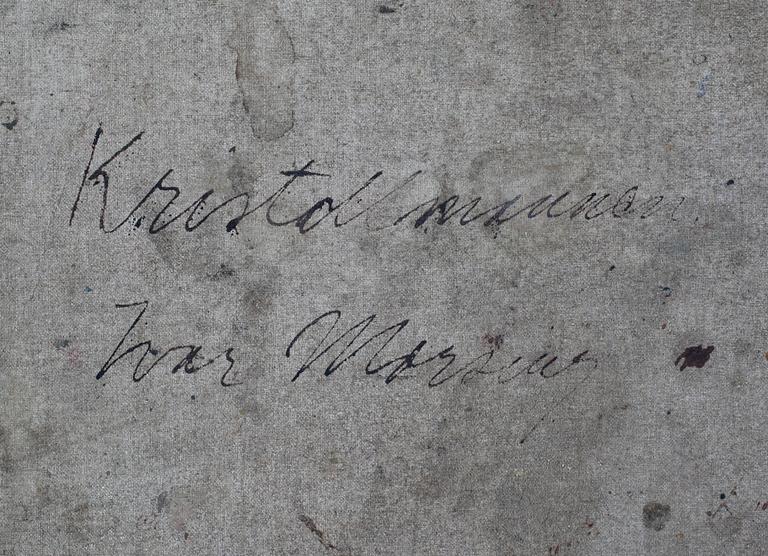 Kristallmannen
Ivar Morsing